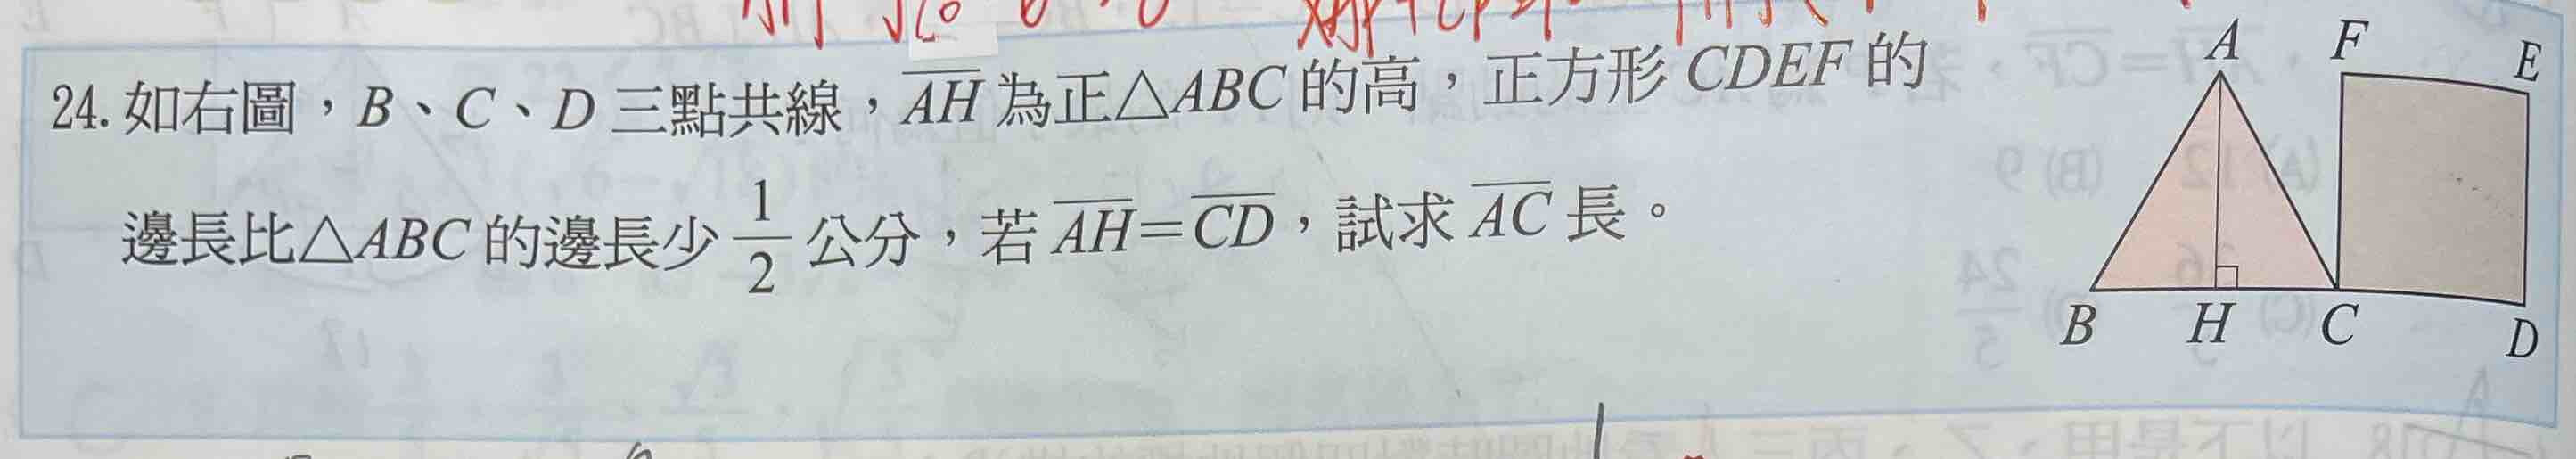 24. 如右圖，B、C、D 三點共線，AH 為正△ABC 的高，正方形 CDEF 的
邊長比△ABC 的邊長少 1/2 公分，若 AH=CD，試求 AC 長。
A
F
E
B
H
C
D